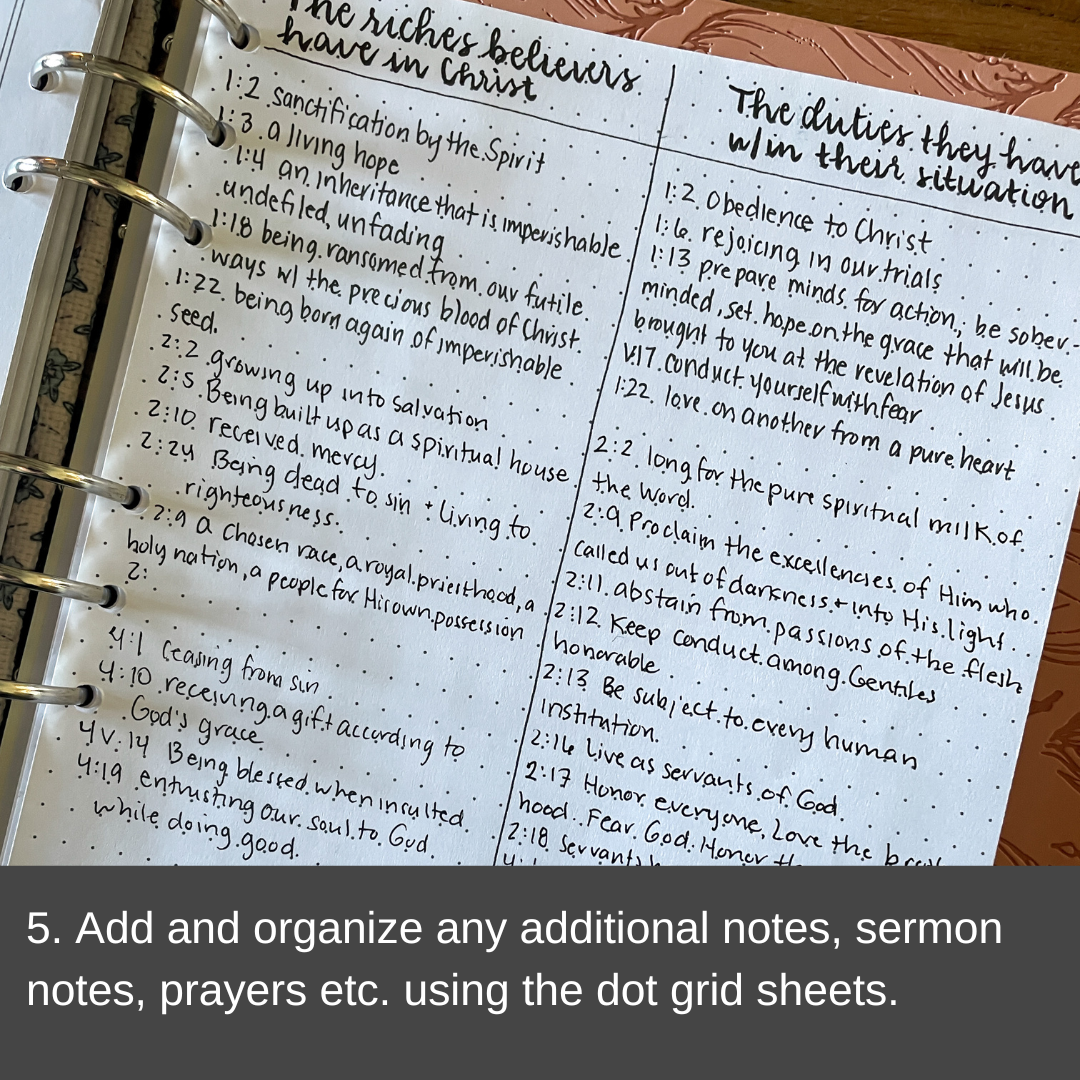 The riches believers
have in Christ
1:2 sanctification by the Spirit
1:3 a living hope
1:4 an inheritance that is imperishable
undefiled, unfading
1:18 being ransomed from our futile
ways w/ the precious blood of Christ.
1:22. being born again of imperishable
seed.
2:2 growing up into salvation
2:5. Being built up as a spiritual house
2:10 received mercy.
2:24 Being dead to sin + living to
righteousness.
2:9 a chosen race, a royal priesthood, a
holy nation, a people for His own possession
2:
4:1 Ceasing from sin
4:10 receiving a gift according to
God's grace
4 v. 14 Being blessed when insulted
4:19 entrusting our soul to God
while doing good.
The duties they have
w/in their situation
1:2. Obedience to Christ
1:6. rejoicing in our trials
1:13 prepare minds for action, be sober-
minded, set hope on the grace that will be
brought to you at the revelation of Jesus
v.17. conduct yourself with fear
1:22. love on another from a pure heart
2:2. long for the pure spiritual milk of
the Word.
2:9. Proclaim the excellencies of Him who
called us out of darkness + into His light
2:11. abstain from passions of the flesh
2:12. Keep conduct among Gentiles
honorable
2:13 Be subject to every human
institution.
2:16 Live as servants of God
2:17 Honor everyone. Love the
hood. Fear God. Honor
2:18. Servants
5. Add and organize any additional notes, sermon
notes, prayers etc. using the dot grid sheets.